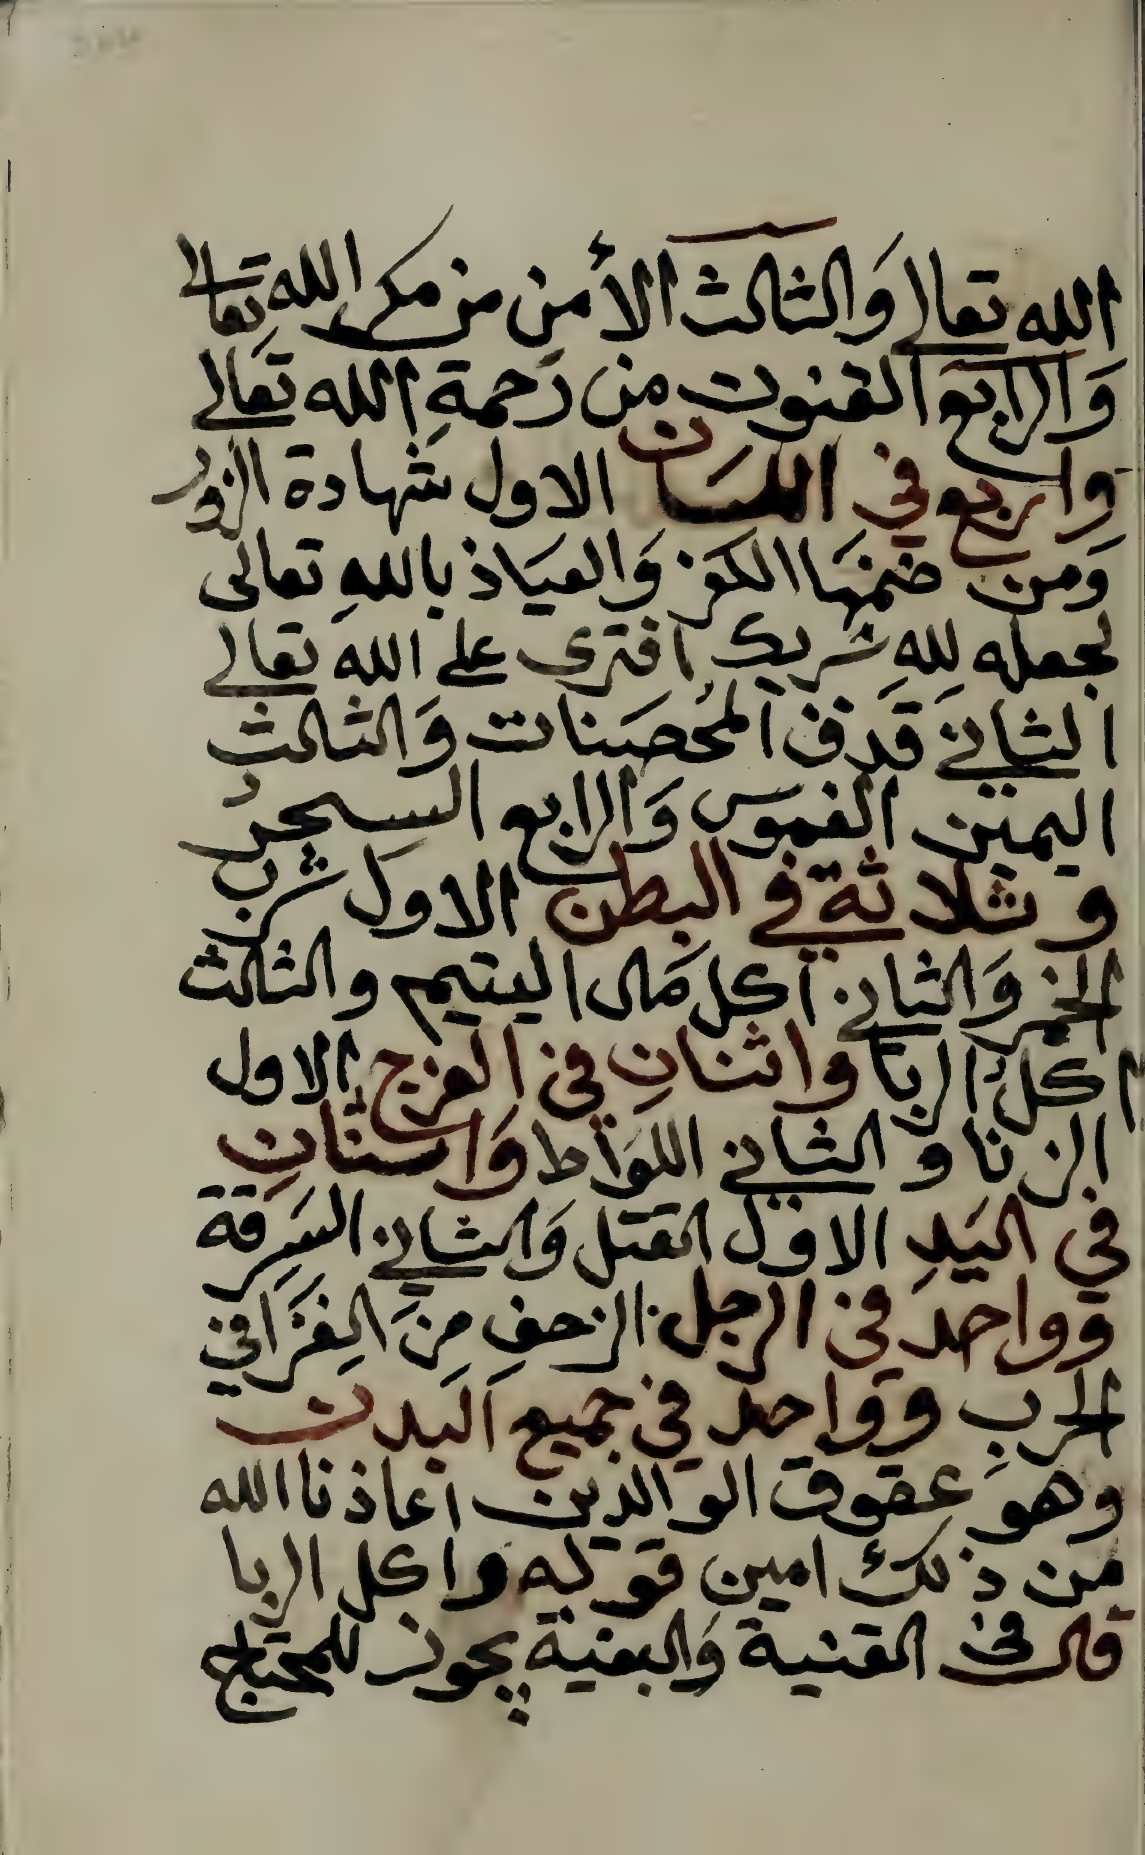 الله تعالى وَالثالث الأمن من مكر الله تعالى
وَالرابع القنوت من رَحمةِ الله تعَالى
واربع في اللسَان الاول شهادة الزور
وَمن ضمنهَا الكفر وَالعيَاذ باللهِ تعالى
لجعله للهِ شريك افترى على الله تعالى
الثاني قَذف المُحصَنات وَالثالث
اليمين الغموس وَالرابع السحر
وثلاثة في البطن الاول شرب
الخمر وَالثاني اكل مَال اليتيم والثالث
اكل الربا واثنانِ في الفرج الاول
الزنا والثاني اللوَاط وَاثنانِ
في اليَدِ الاول القتل وَالثاني السَرِقة
وواحد في الرجل الزحفِ مِنَ الفِرَار في
الحرب وواحد في جميع البدن
وهو عقوق الوالدين اعاذنا الله
من ذلك امين قوله واكل الربا
قال في القنية وَالبغية يجوز للمحتاج